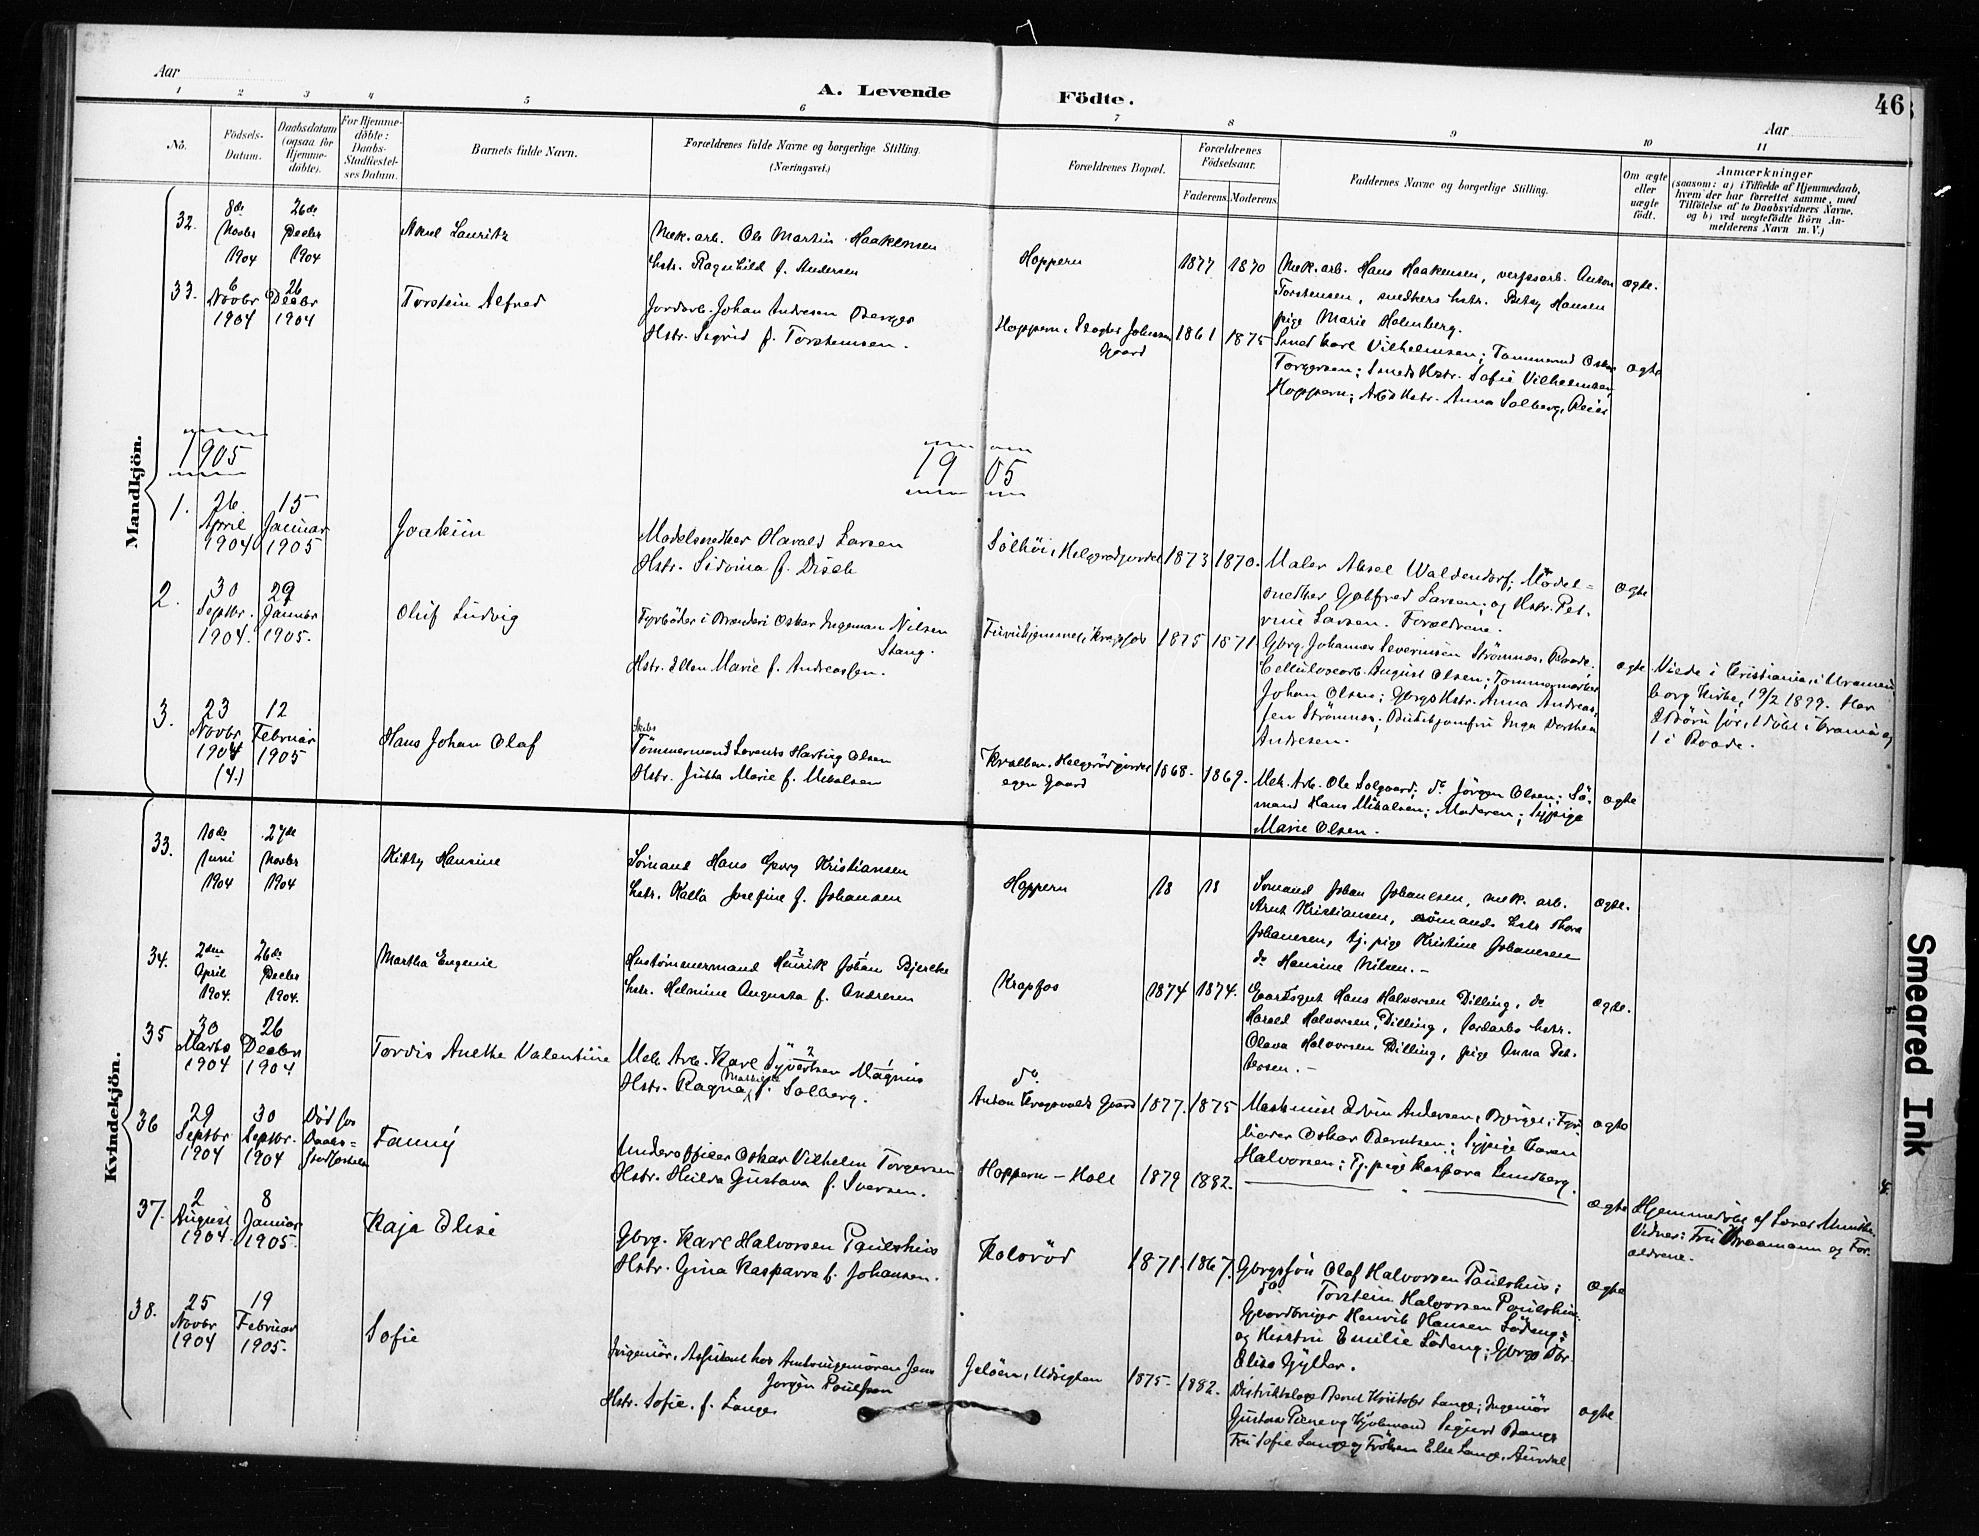 Aar
A. Levende Födte.
46
Aar
1 2 3 4 5 6 7 8 9 10 11
No.
Fødsels-Datum.
Daabsdatum (ogsaa for Hjemme-döbte).
For Hjemme-döbte: Daabs-Stadfæstel-ses Datum.
Barnets fulde Navn.
Forældrenes fulde Navne og borgerlige Stilling.
(Næringsvei.)
Forældrenes Bopæl.
Forældrenes Födselsaar.
Faderens. Moderens.
Faddernes Navne og borgerlige Stilling.
Om ægte eller uægte födt.
Anmærkninger
(saasom: a) i Tilfælde af Hjemmedaab, hvem der har forrettet samme, med Tilföielse af to Daabsvidners Navne, og b) ved uægtefödte Börn An-melderens Navn m. V.)
Mandkjön.
32. 8de Novbr 1904
26de Decbr 1904
Aksel Lauritz
Mek. arb. Ole Martin Haakensen
hstr. Ragnhild f. Andersen
Hoppern
1877 1870
Mek. arb. Hans Haakensen, verftsarb. Anton
Torstensen, snedkers hstr. Betsy Hansen
pige Marie Holmberg.
ægte.
33. 6 Novbr 1904
26 Decbr 1904
Torstein Alfred
Jordarb. Johan Andresen Berger
Hstr. Sigrid f. Torstensen.
Hoppern, Slagter Johnsen
Gaard
1861 1875
Smed Carl Vilhelmsen; Tømmermd Oskar
Torgersen; Smeds Hstr. Sofie Vilhelmsen,
Hoppern; Arbs Hstr. Anna Solberg, Reier
ægte
1905
1905
1. 26 April 1904
15 Januar 1905
Joakim
Modelsnedker Harald Larsen
Hstr. Sidvina f. Disch
Solhöi, Helgerødgjordet
1873 1870.
Maler Aksel Waldendorf, Model=
snedker Gotfred Larsen; og Hstr. Pet-
rine Larsen. Forældrene.
ægte
2. 30 Septbr. 1904.
29 Januar 1905.
Oluf Ludvig
Fyrbøder i Brænderi Oskar Ingeman Nilsen
Stang.
Hstr. Ellen Marie f. Andreassen.
Furuhjemmet, Krapfos
1875 1871.
Gbrg. Johannes Severinsen Strømnes, Raade;
Cellulosearb. August Olsen; Tømmermand
Johan Olsen; Gbrgs Hstr. Anna Andreas-
sen Strømnes; Butikjomfru Inga Dorthea
Andresen.
ægte
Viede i Kristiania, i Uranien
borg Kirke, 19/2 1899. Har
2 børn før, 1 døbt i Urania og
1 i Raade.
3. 23 Novbr 1904 (4.)
12 Februar 1905
Hans Johan Olaf
Skibs
Tømmermand Lorents Hartvig Olsen
Hstr. Jutta Marie f. Mikalsen
Krolben, Helgerødgjordet
egen Gaard
1868. 1869.
Mek. Arb. Ole Solgaard; do Jørgen Olsen; Sø-
mand Hans Mikalsen; Moderen; Sypige
Marie Olsen.
ægte
Kvindekjön.
33. 10de Juni 1904
27de Novbr 1904
Kitty Hansine
Sømand Hans Georg Kristiansen
hstr. Kalla Josefine f. Johansen
Hoppern
18 18
Sømand Johan Johansen, mek. arb.
Arnt Kristiansen, sømands hstr Thora
Johansen, tj. pige Kristine Johansen
do Hansine Nilsen. -
ægte.
34. 2den April 1904.
26de Decbr 1904.
Martha Eugenie
Hustømmermand Henrik Johan Bjercke
hstr. Helmine Augusta f. Andresen
Krapfos
1874 1874.
Gaardsgut Hans Halvorsen Dilling, do
Harald Halvorsen, Dilling, jordarbs hstr.
Olava Halvorsen Dilling, pige Anna Pet-
tersen. -
ægte.
35 30 Marts 1904
26 Decbr 1904
Tordis Anethe Valentine
Mek. Arb. Karl Syvertsen Magnus
Hstr. Ragna Mathilde f. Solberg.
do.
Anton Kragsvolds Gaard
1877. 1875
Maskinist Edvin Andersen, Bjerget; Fyr-
bøder Oskar Berntsen; Sypige Karen
Halvorsen; Tj. pige Kaspara Lundberg.
ægte
36 29 Septbr 1904
30 Septbr. 1904
Død før Daabs=stadfæstelsen
Fanny
Underofficer Oskar Vilhelm Torgersen
Hstr. Hulda Gustava f. Iversen.
Hoppern - Moll
1879 1882.
ægte
Hjemmedøbt af Lærer Munthe
Vidner: Fru Braamann og For-
ældrene.
37. 2 August 1904.
8 Januar 1905.
Kaja Elise
Gbrg. Karl Halvorsen Paulshus
Hstr. Gina Kasparra f. Johansen.
Kolsrød
1871. 1867.
Gbrgssøn Olaf Halvorsen Paulshus;
do Torstein Halvorsen Paulshus.
Gaardbruger Henrik Hansen Lødeng;
og Hustru Emilie Lødeng; Gbrgs Dtr.
Elise Gylter.
ægte
38. 25 Novbr 1904
19 Februar 1905.
Sofie
Ingeniør, Assistent hos Amtsingeniøren Jens
Jørgen Paulsson
Hstr. Sofie. f. Lange
Jeløen, Udsigten
1875. 1882.
Distriktslæge Bernt Kristofer Lange; Ingeniør
Gustav Piene og Kjøbmand Sigurd Bang;
Fru Sofie Lange og Frøken Else Lange, Aurdal
ægte
Smeared Ink